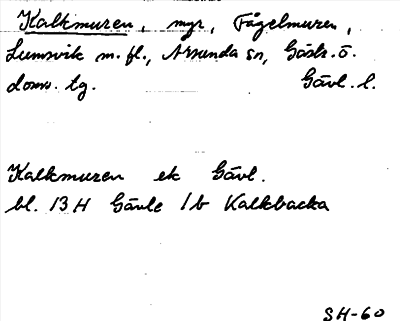 Kalkmuren, myr, Fågelmuren,
Lumsvik m.fl., Årsunda sn, Gästr. ö.
doms. tg. Gävl. l.
Kalkmuren ek Gävl.
bl. 13 H Gävle 1b Kalkbacka
SH-60